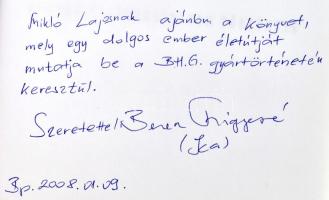 Mikló Lajosnak ajánlom a könyvet,
mely egy dolgos ember életútját
mutatja be a BHG. gyártörténetén
keresztül.
Szeretettel: Beren
(Ica)
Bp. 2008.01.09.